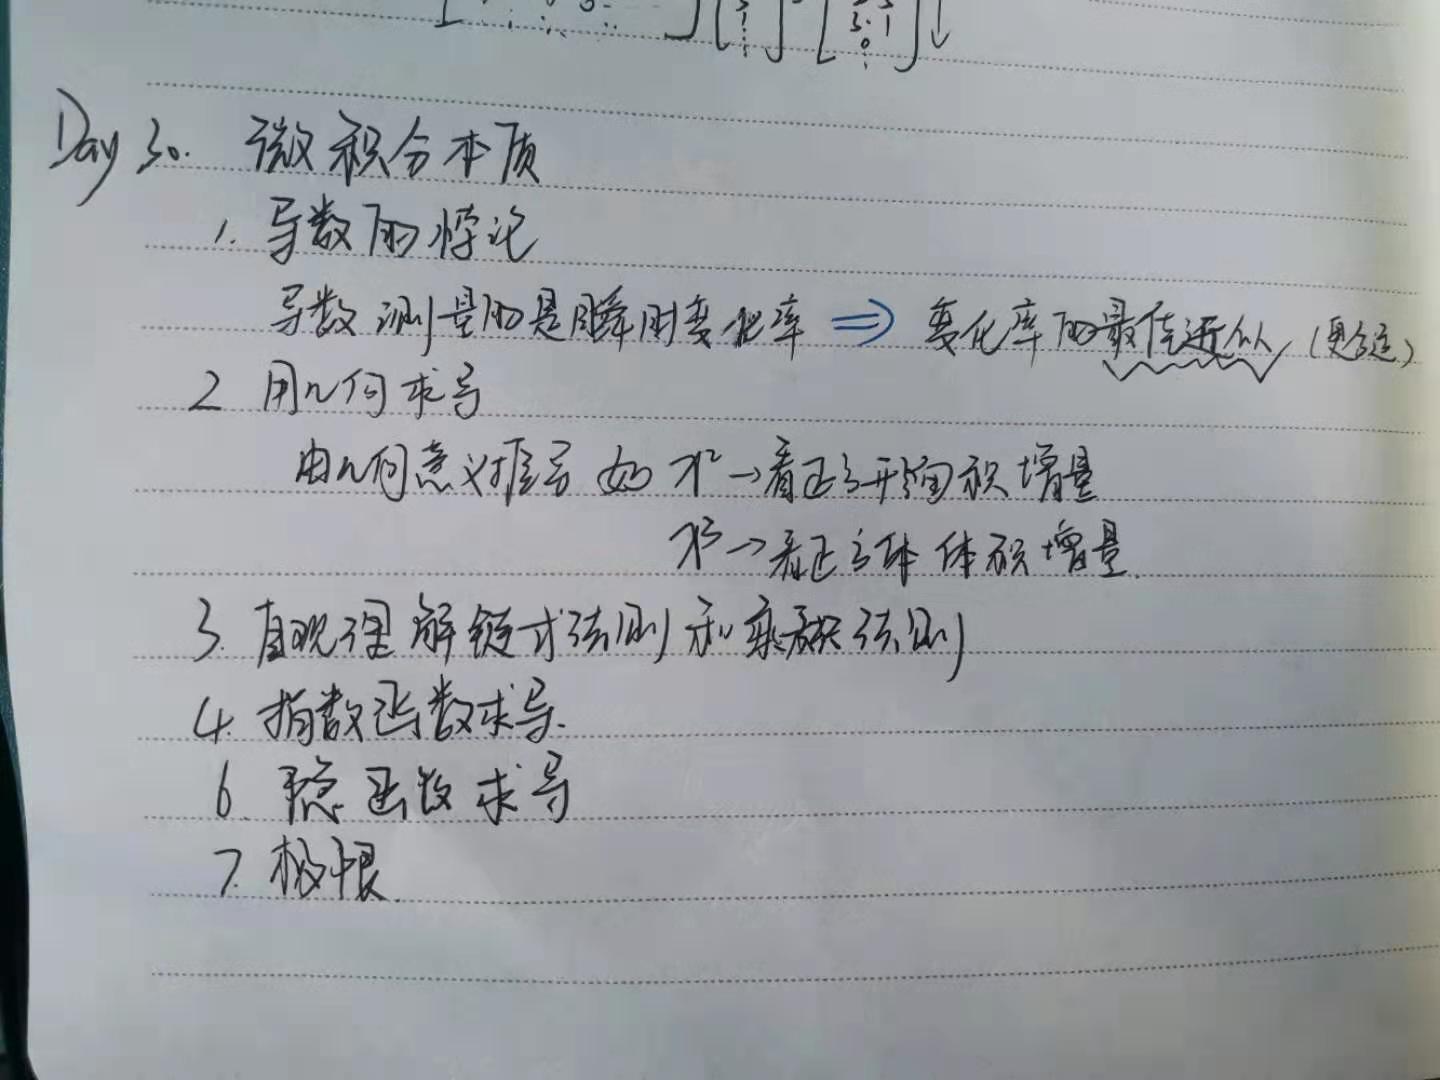 Day 30. 微积分本质
1. 导数的悖论
导数测量的是瞬时变化率 ⇒ 变化率的最佳近似 (更合适)
2 用几何求导
由几何意义推导 如 x² → 看正方形面积增量
x³ → 看正方体体积增量.
3. 直观理解链式法则和乘积法则
4. 指数函数求导.
6. 隐函数求导
7. 极限.